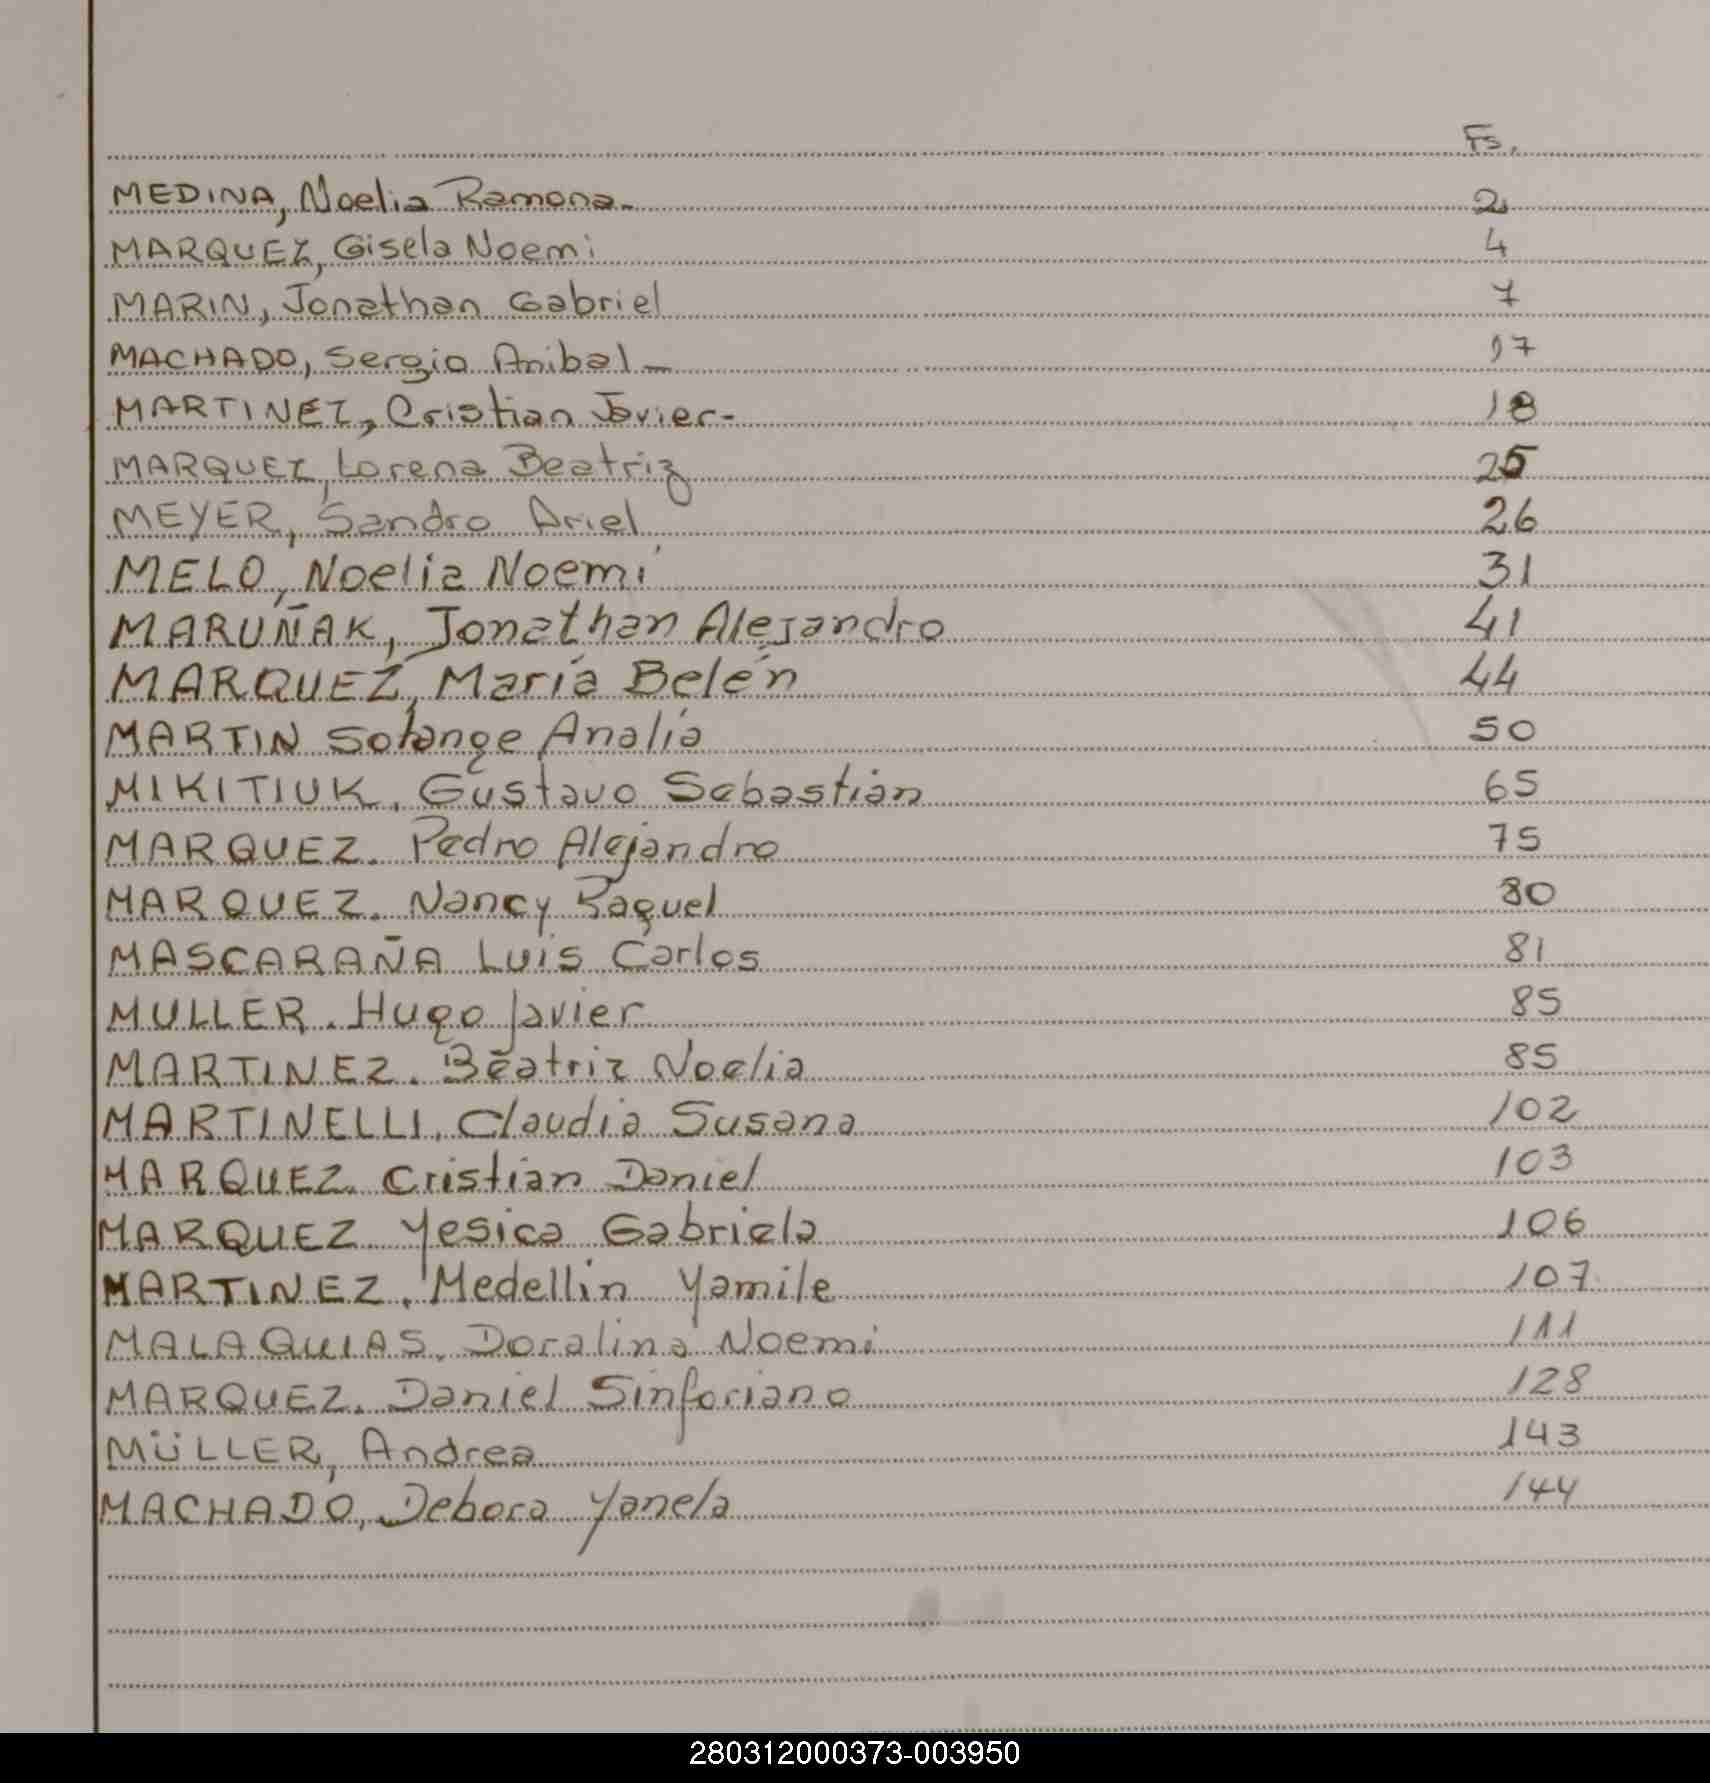 Fs.
MEDINA, Noelia Ramona- 2
MARQUEZ, Gisela Noemi 4
MARIN, Jonathan Gabriel 7
MACHADO, Sergio Anibal - 17
MARTINEZ, Cristian Javier- 18
MARQUEZ, Lorena Beatriz 25
MEYER, Sandro Ariel 26
MELO, Noelia Noemí 31
MARUÑAK, Jonathan Alejandro 41
MARQUEZ, María Belén 44
MARTIN Solange Analía 50
MIKITIUK. Gustavo Sebastián 65
MARQUEZ. Pedro Alejandro 75
MARQUEZ. Nancy Raquel 80
MASCARAÑA Luis Carlos 81
MULLER. Hugo Javier 85
MARTINEZ. Beatriz Noelia 85
MARTINELLI. Claudia Susana 102
MARQUEZ. Cristian Daniel 103
MARQUEZ Yesica Gabriela 106
MARTINEZ. Medellin Yamile 107
MALAQUIAS. Doralina Noemi 111
MARQUEZ. Daniel Sinforiano 128
MÜLLER, Andrea 143
MACHADO, Debora Yanela 144
280312000373-003950